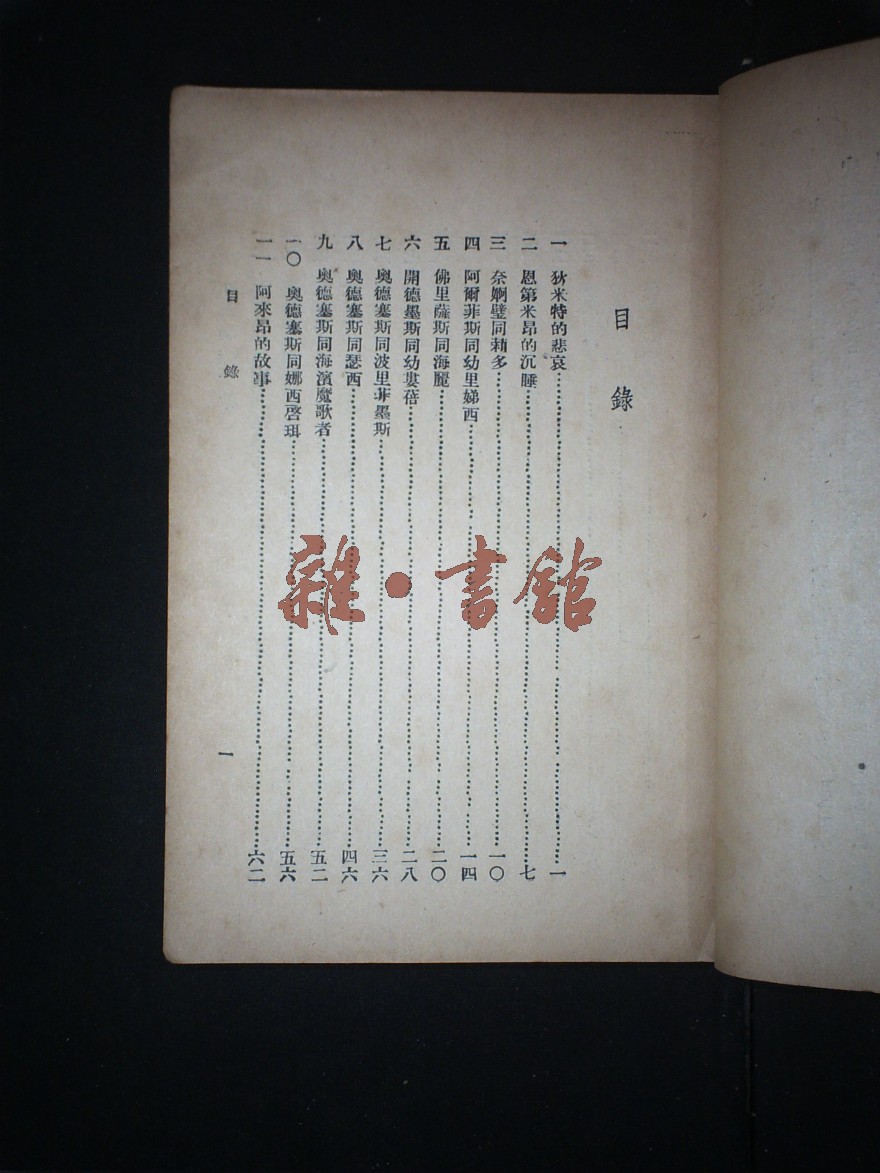 目錄
一 狄米特的悲哀 一
二 恩第米昂的沉睡 七
三 奈婀璧同賴多 一〇
四 阿爾菲斯同幼里娣西 一四
五 佛里薩斯同海麗 二〇
六 開德墨斯同幼婁蓓 二八
七 奧德塞斯同波里菲墨斯 三六
八 奧德塞斯同瑟西 四六
九 奧德塞斯同海濱魔歌者 五二
一〇 奧德塞斯同娜西啓珥 五六
一一 阿來昂的故事 六二
目錄 一
雜·書館